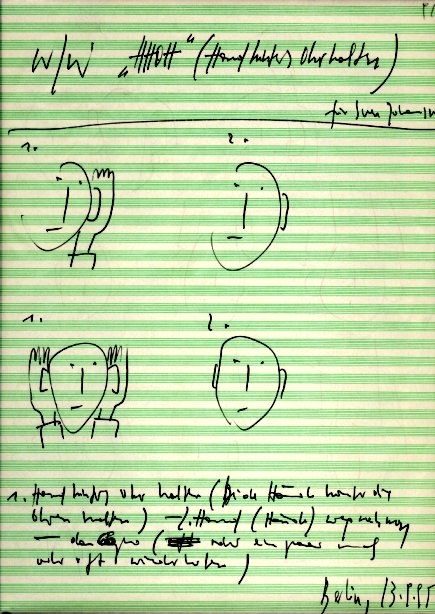 W/W „HHOH“ (Hand hinters Ohr halten)
für Sven
1. 2.
1. 2.
1. Hand hinters Ohr halten (Beide Hände hinter die
Ohren halten) – 2. Hand (Hände) wegnehmen
oder ein paar mal
oder oft wiederholen)
Berlin, 13.9.95